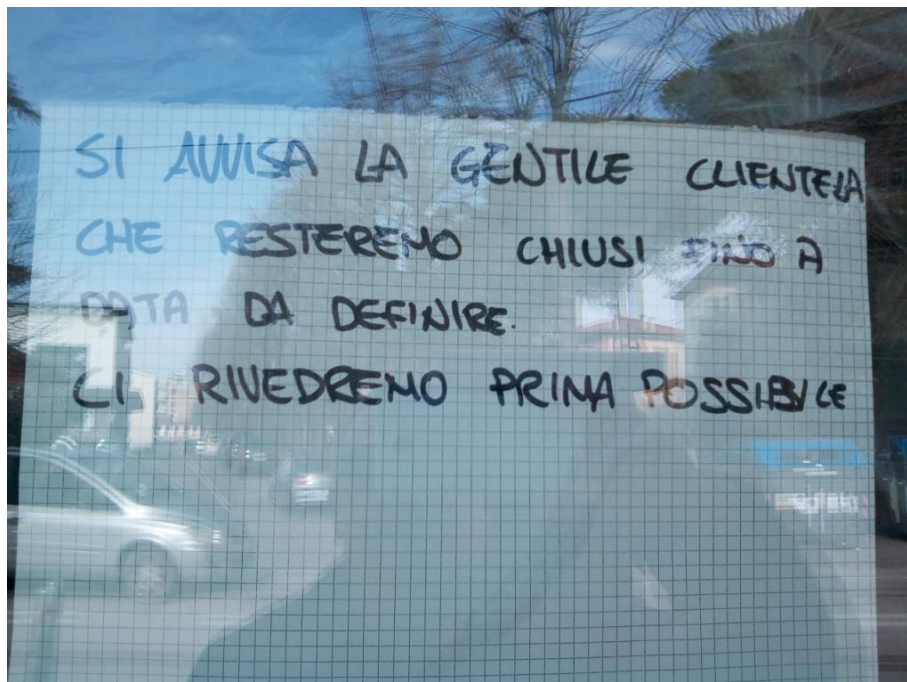 SI AVVISA LA GENTILE CLIENTELA
CHE RESTEREMO CHIUSI FINO A
DATA DA DEFINIRE.
CI RIVEDREMO PRIMA POSSIBILE